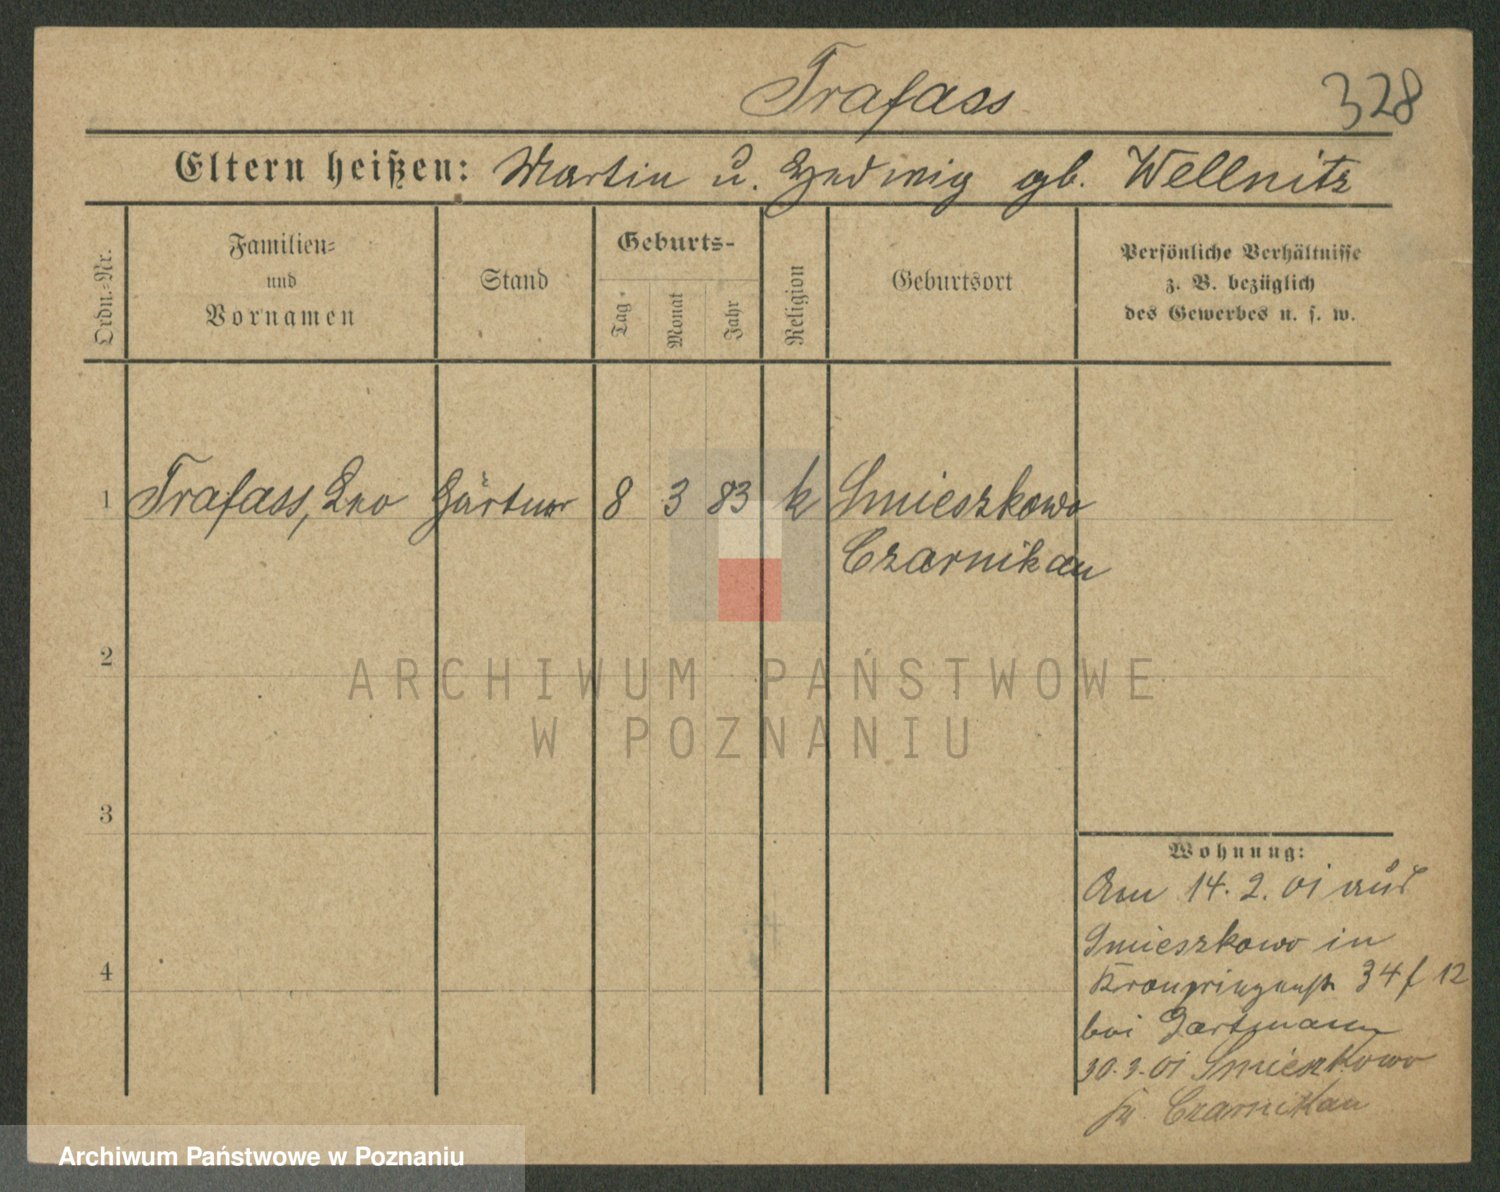 Trafass
328
Eltern heißen: Martin u. Hedwig gb. Wellnitz
Ordn.=Nr.
Familien=
und
Vornamen
Stand
Geburts-
Tag
Monat
Jahr
Religion
Geburtsort
Persönliche Verhältnisse
z. B. bezüglich
des Gewerbes u. s. w.
1 Trafass, Leo Gärtner 8 3 83 k Smieszkowo
Czarnikau
2
3
4
Wohnung:
Am 14. 2. 01 aus
Smieszkowo in
Kronprinzenstr 34 f 12
bei
30.3.01 Smieszkowo
Czarnikau
ARCHIWUM PAŃSTWOWE
W POZNANIU
Archiwum Państwowe w Poznaniu